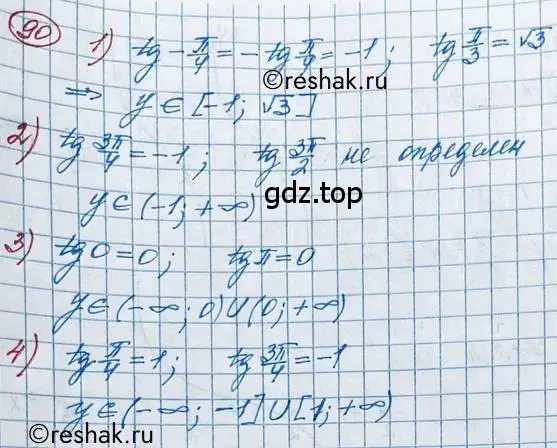 90
1) tg - π/4 = - tg π/4 = -1; tg π/3 = √3
©reshak.ru
⇒ y ∈ [-1; √3]
2) tg 3π/4 = -1; tg 3π/2 не определен
gdz.top
y ∈ (-1; +∞)
3) tg 0 = 0; tg π = 0
y ∈ (-∞; 0) ∪ (0; +∞)
4) tg π/4 = 1; tg 3π/4 = -1
y ∈ (-∞; -1] ∪ [1; +∞)
©reshak.ru